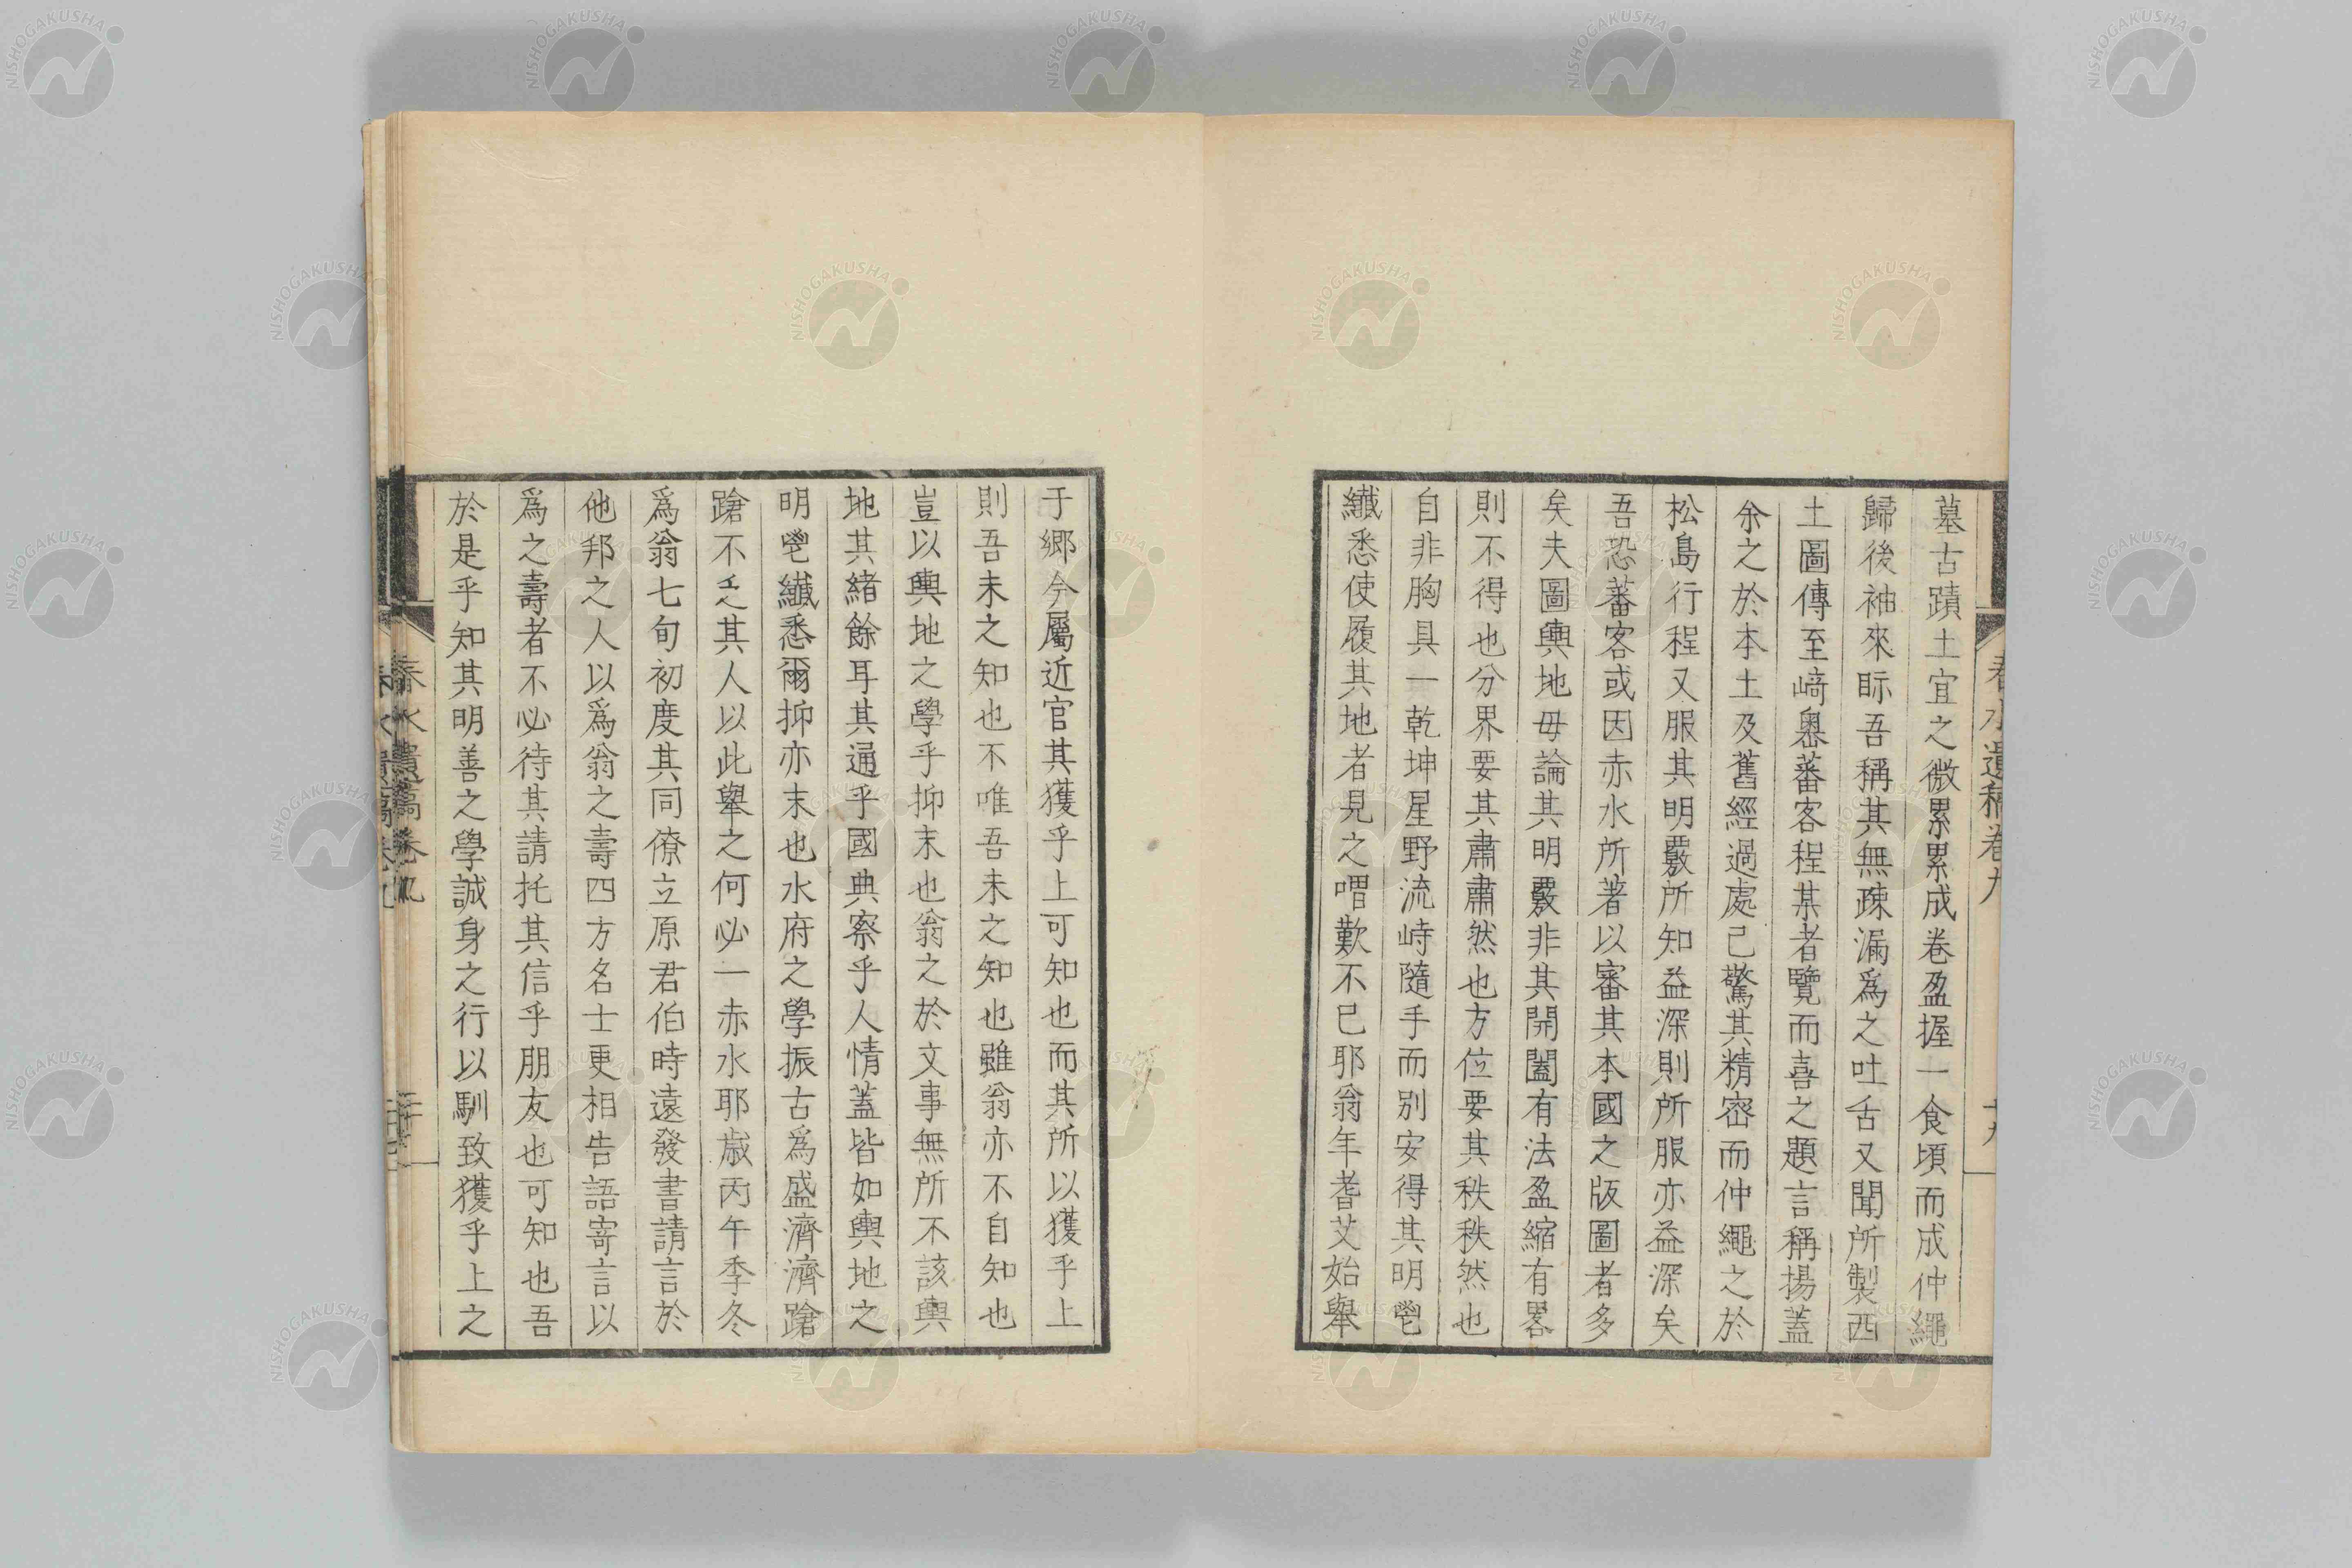 春水遺稿卷九
十九
墓古蹟土宜之微累累成卷盈握一食頃而成仲繩
歸後袖來眎吾稱其無疎漏爲之吐舌又聞所製西
土圖傳至﨑奥蕃客程某者覽而喜之題言稱揚蓋
余之於本土及舊經過處已驚其精宻而仲繩之於
松島行程又服其明覈所知益深則所服亦益深矣
吾恐蕃客或因赤水所著以審其本國之版圖者多
矣夫圖輿地毋論其明覈非其開闔有法盈縮有畧
則不得也分界要其肅肅然也方位要其秩秩然也
自非胸具一乾坤星野流峙隨手而別安得其明鬯
纖悉使履其地者見之喟歎不已耶翁年耆艾始舉
于鄉今屬近官其獲乎上可知也而其所以獲乎上
則吾未之知也不唯吾未之知也雖翁亦不自知也
豈以輿地之學乎抑末也翁之於文事無所不該輿
地其緒餘耳其通乎國典察乎人情蓋皆如輿地之
明鬯纖悉爾抑亦末也水府之學振古爲盛濟濟蹌
蹌不乏其人以此舉之何必一赤水耶歳丙午季冬
爲翁七旬初度其同僚立原君伯時遠發書請言於
他邦之人以爲翁之壽四方名士更相告語寄言以
爲之壽者不必待其請托其信乎朋友也可知也吾
於是乎知其明善之學誠身之行以馴致獲乎上之
春水遺稿卷九